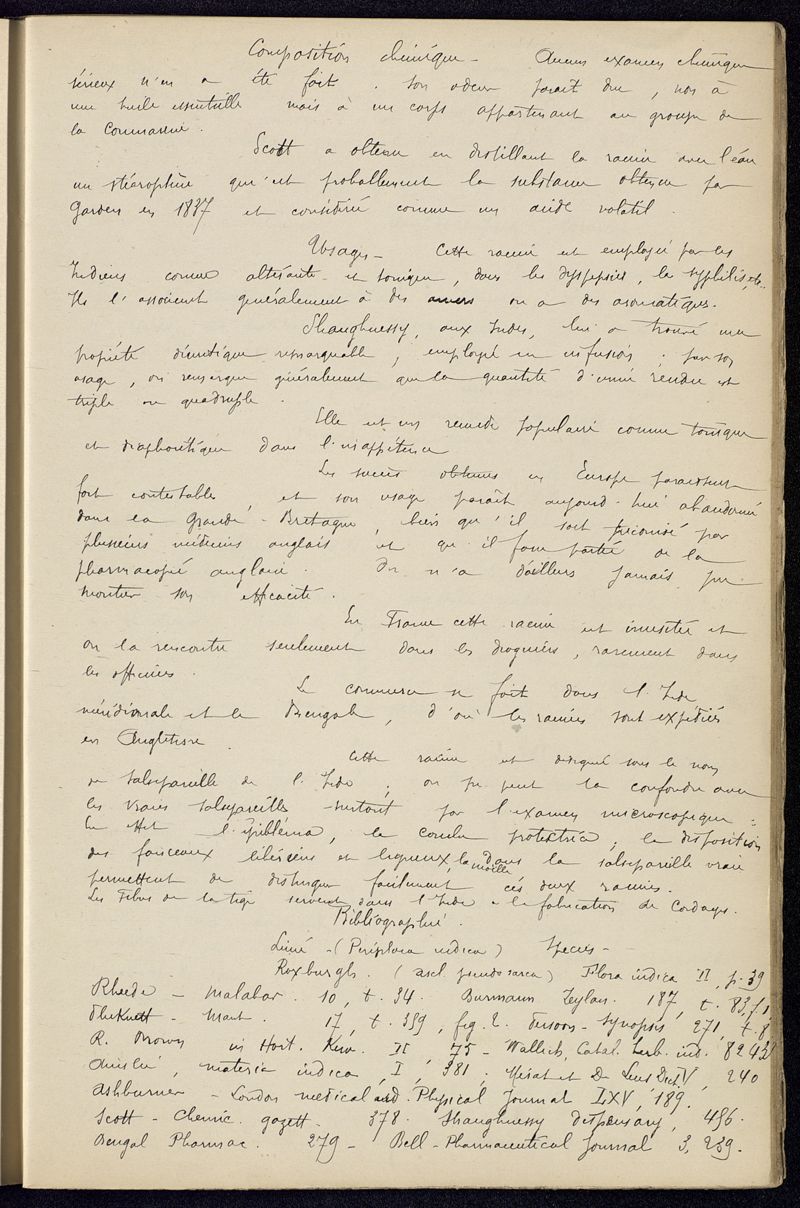 Composition chimique - Aucun examen chimique
sérieux n'en a été fait. Son odeur parait due, non à
une huile essentielle mais à un corps appartenant au groupe de
la Coumarine.
Scott a obtenu en distillant la racine avec l'eau
un stéaroptène qui est probablement la substance obtenue par
Garden en 1837 et considéré comme un acide volatil.
Usages - Cette racine est employée par les
Indiens comme altérante et tonique, dans les dyspepsies, la syphilis, etc.
Ils l'associent généralement à des amers ou à des aromatiques.
Shaughnessy, aux Indes, lui a trouvé une
propriété diurétique remarquable, employé en infusion; par son
usage, on remarque généralement que la quantité d'urine rendue est
triple ou quadruple.
Elle est un remède populaire comme tonique
et diaphorétique dans l'inappétence
Les succès obtenus en Europe paraissent
fort contestables, et son usage parait aujourd'hui abandonné
dans la Grande-Bretagne, bien qu'il soit préconisé par
plusieurs médecins anglais et qu'il fasse partie de la
pharmacopée anglaise. On n'a d'ailleurs jamais pu
montrer son efficacité.
En France cette racine est inusitée et
on la rencontre seulement dans les droguiers, rarement dans
les officines.
Le commerce se fait dans l'Inde
méridionale et le Bengale, d'où les racines sont expédiées
en Angleterre.
Cette racine est désigné sous le nom
de Salsepareille de l'Inde; on ne peut la confondre avec
les vraies salsepareilles surtout par l'examen microscopique:
l'épibléma, la couche protectrice, la disposition
des faisceaux libériens et ligneux, la moelle dans la salsepareille vraie
permettent de distinguer facilement ces deux racines.
Les Fibres de la tige servent dans l'Inde à la fabrication de Cordages.
Bibliographie.
Linné - (Periploca indica) Species -
Roxburgh. (ascl. pseudosarsa) Flora indica II, p. 39
Rheede - Malabar. 10, t. 34. Burmann Zeylan. 187, t. 83, f. 1
Pluknett - Mant. 17, t. 359, fig. 2. Persoon - Synopsis 271, t. 8
R. Brown in Hort. Kew. II, 75 - Wallich, Catal. herb. ind. 8242
Ainslie, materia indica, I, 381; Mérat et De Lens Dict. V, 240
Ashburner - London medical and Physical Journal LXV, 189.
Scott - Chemic. gazett. 378. Shaughnessy Dispensary, 456.
Bengal Pharmac. 279 - Bell - Pharmaceutical Journal 3, 239.